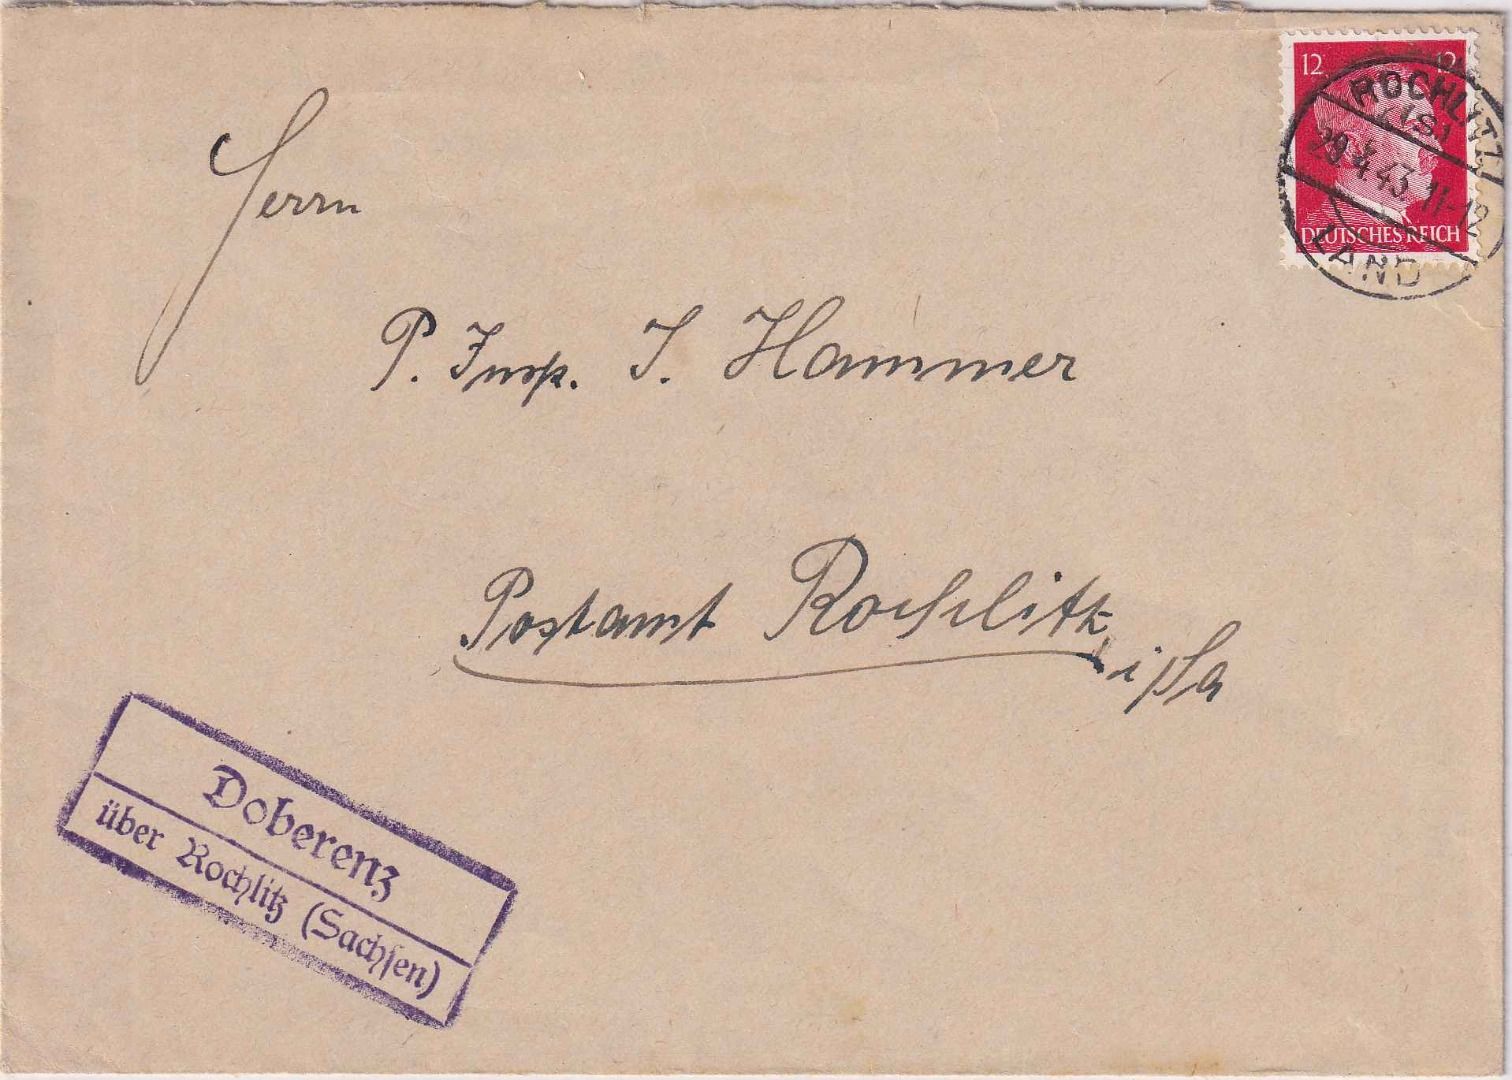 12 12
DEUTSCHES REICH
ROCHLITZ
(S)
29.4.43. 11-12
LAND
Herrn
P. Insp. J. Hammer
Postamt Rochlitz
i/Sa
Doberenz
über Rochlitz (Sachsen)